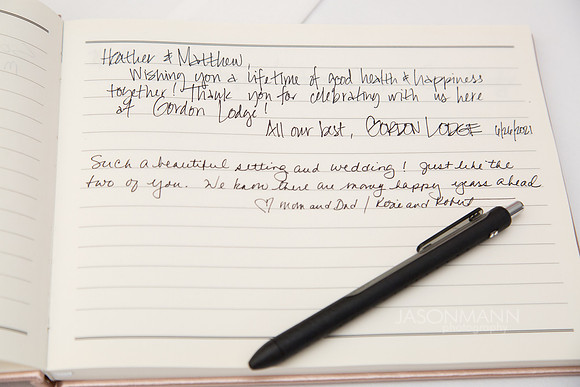 Heather & Matthew,
Wishing you a lifetime of good health & happiness
together! Thank you for celebrating with us here
at Gordon Lodge!
All our best, GORDON LODGE 6/26/2021
Such a beautiful setting and wedding! Just like the
two of you. We know there are many happy years ahead
♡ Mom and Dad / Rosie and Robert
JASONMANN